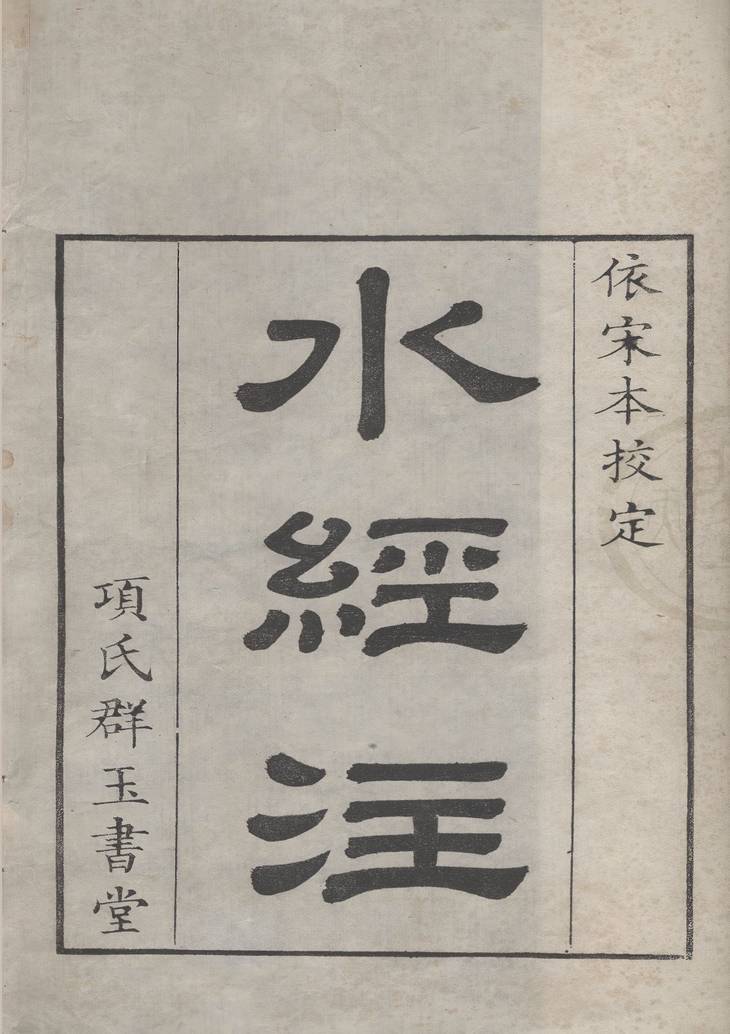 依宋本挍定
水經注
項氏群玉書堂